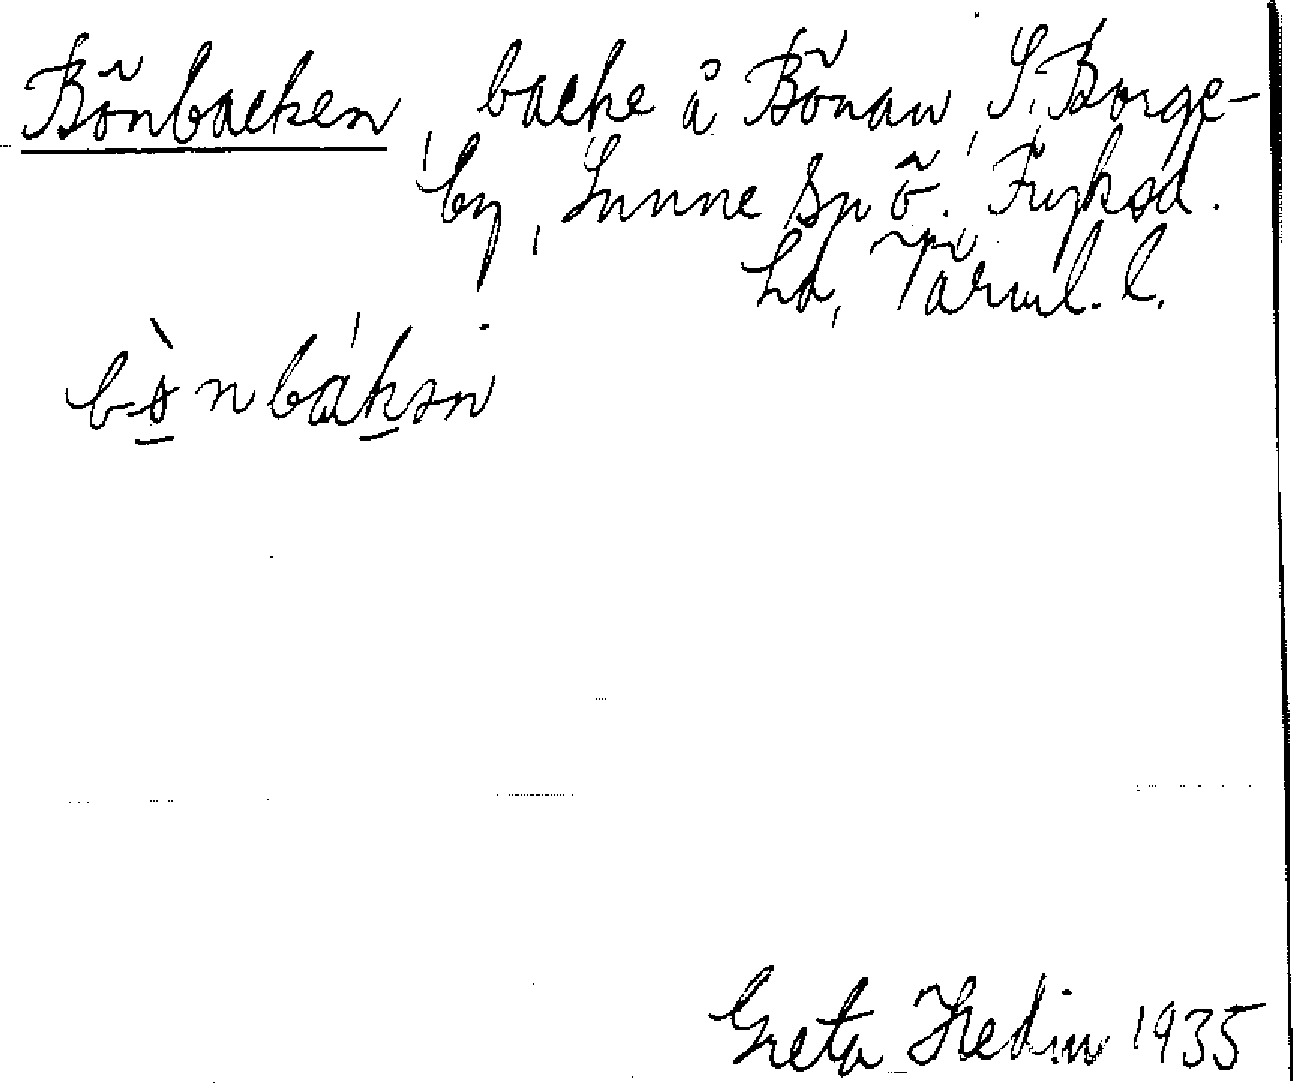 Bönbacken, backe å Bönan, S. Borge-
by, Sunne sn Ö. Fryksd.
hd, Värml. l.
bə̀nbákən
Greta Hedin 1935